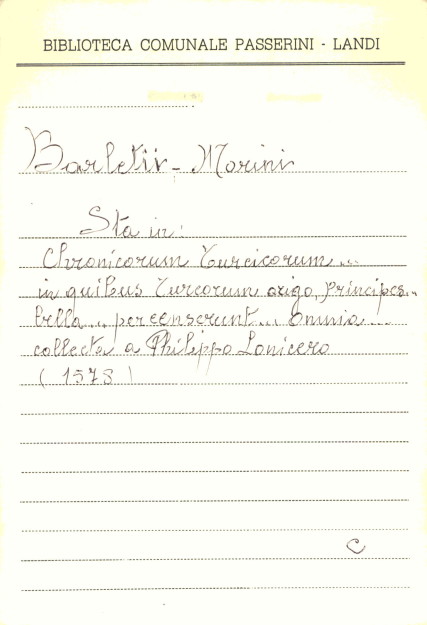 BIBLIOTECA COMUNALE PASSERINI - LANDI
Barletii - Marini
Sta in:
Chronicorum Turcicorum...
in quibus Turcorum origo, Principes..
bella... percenserunt... Omnia...
collecta a Philippo Lonicero
( 1578 )
C